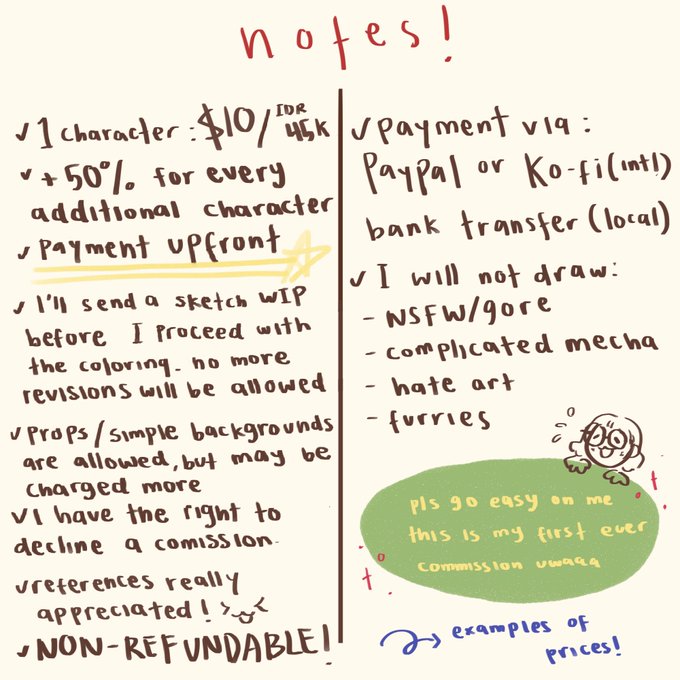 notes!
✓ 1 character: $10/IDR 45K
✓ + 50% for every
additional character
✓ payment upfront
✓ I'll send a sketch WIP
before I proceed with
the coloring. no more
revisions will be allowed
✓ props/simple backgrounds
are allowed, but may be
charged more
✓ I have the right to
decline a comission.
✓ references really
appreciated!
✓ NON-REFUNDABLE!
✓ payment via:
PayPal or Ko-fi(intl)
bank transfer(local)
✓ I will not draw:
- NSFW/gore
- complicated mecha
- hate art
- furries
pls go easy on me
this is my first ever
commission uwaaa
examples of
prices!